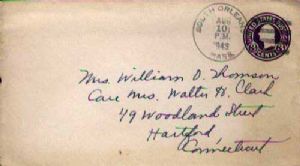 SOUTH ORLEANS
AUG
10
P.M.
1943
MASS.
UNITED STATES
CENTS
Mrs. William O. Thomson
Care Mrs. Walter H. Clark
49 Woodland Street
Hartford
Connecticut